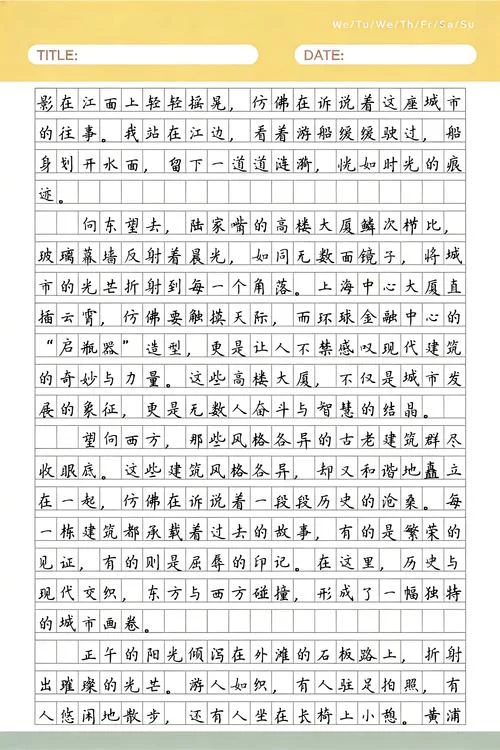 We/Tu/We/Th/Fr/Sa/Su
TITLE:
DATE:
影在江面上轻轻摇晃，仿佛在诉说着这座城市
的往事。我站在江边，看着游船缓缓驶过，船
身划开水面，留下一道道涟漪，恍如时光的痕
迹。
向东望去，陆家嘴的高楼大厦鳞次栉比，
玻璃幕墙反射着晨光，如同无数面镜子，将城
市的光芒折射到每一个角落。上海中心大厦直
插云霄，仿佛要触摸天际，而环球金融中心的
“启瓶器”造型，更是让人不禁感叹现代建筑
的奇妙与力量。这些高楼大厦，不仅是城市发
展的象征，更是无数人奋斗与智慧的结晶。
望向西方，那些风格各异的古老建筑群尽
收眼底。这些建筑风格各异，却又和谐地矗立
在一起，仿佛在诉说着一段段历史的沧桑。每
一栋建筑都承载着过去的故事，有的是繁荣的
见证，有的则是屈辱的印记。在这里，历史与
现代交织，东方与西方碰撞，形成了一幅独特
的城市画卷。
正午的阳光倾泻在外滩的石板路上，折射
出璀璨的光芒。游人如织，有人驻足拍照，有
人悠闲地散步，还有人坐在长椅上小憩。黄浦